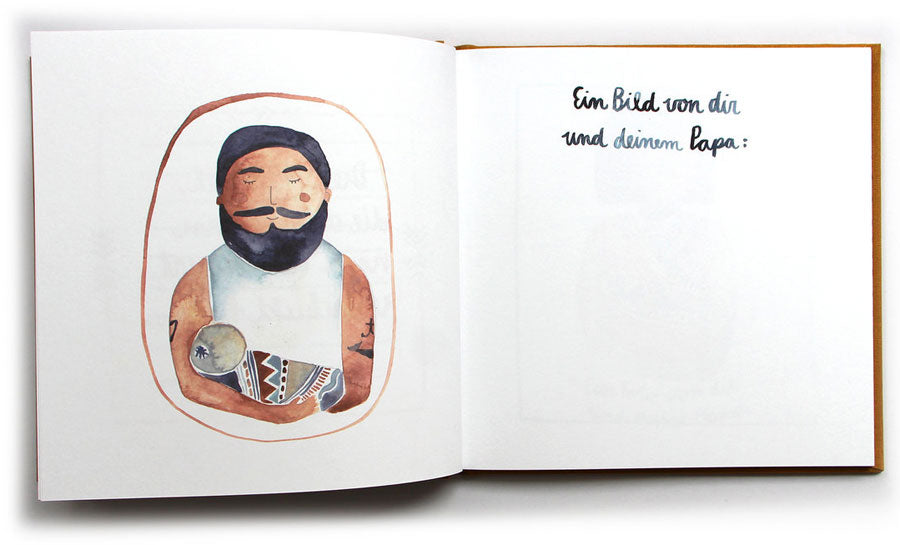 Ein Bild von dir
und deinem Papa: